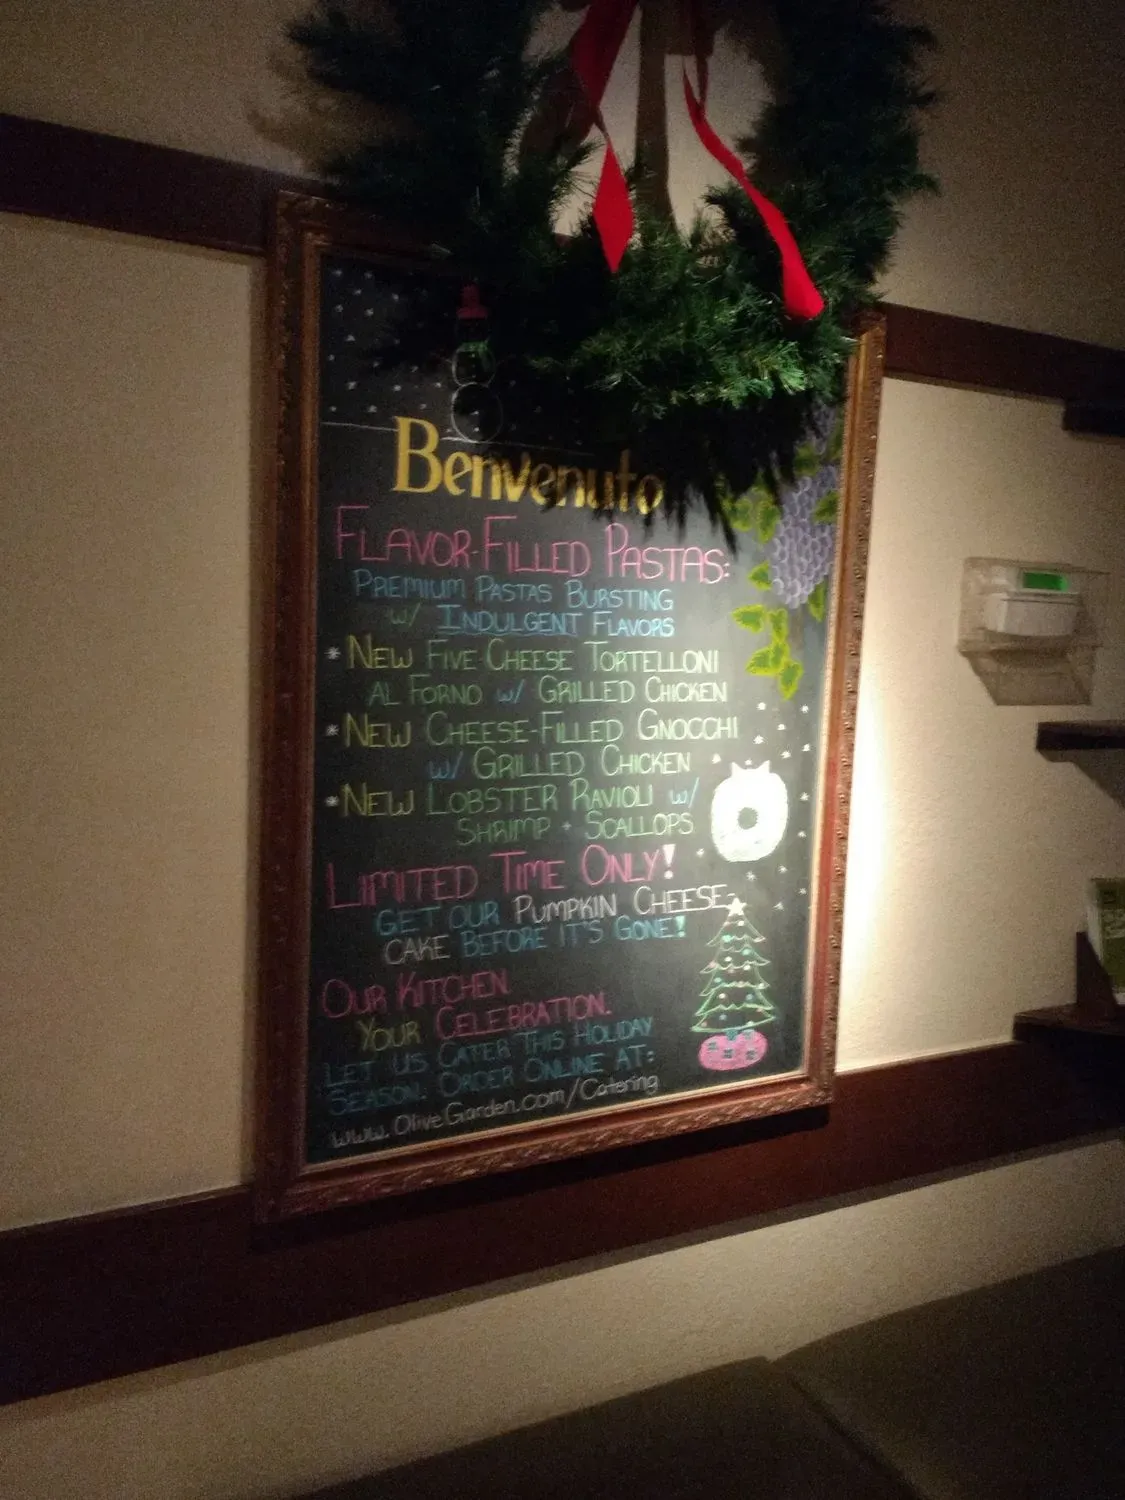 Benvenuto
FLAVOR-FILLED PASTAS:
PREMIUM PASTAS BURSTING
w/ INDULGENT FLAVORS
* NEW FIVE-CHEESE TORTELLONI
AL FORNO w/ GRILLED CHICKEN
* NEW CHEESE-FILLED GNOCCHI
w/ GRILLED CHICKEN
* NEW LOBSTER RAVIOLI w/
SHRIMP + SCALLOPS
LIMITED TIME ONLY!
GET OUR PUMPKIN CHEESE-
CAKE BEFORE IT'S GONE!
OUR KITCHEN.
YOUR CELEBRATION.
LET US CATER THIS HOLIDAY
SEASON. ORDER ONLINE AT:
www.OliveGarden.com/Catering